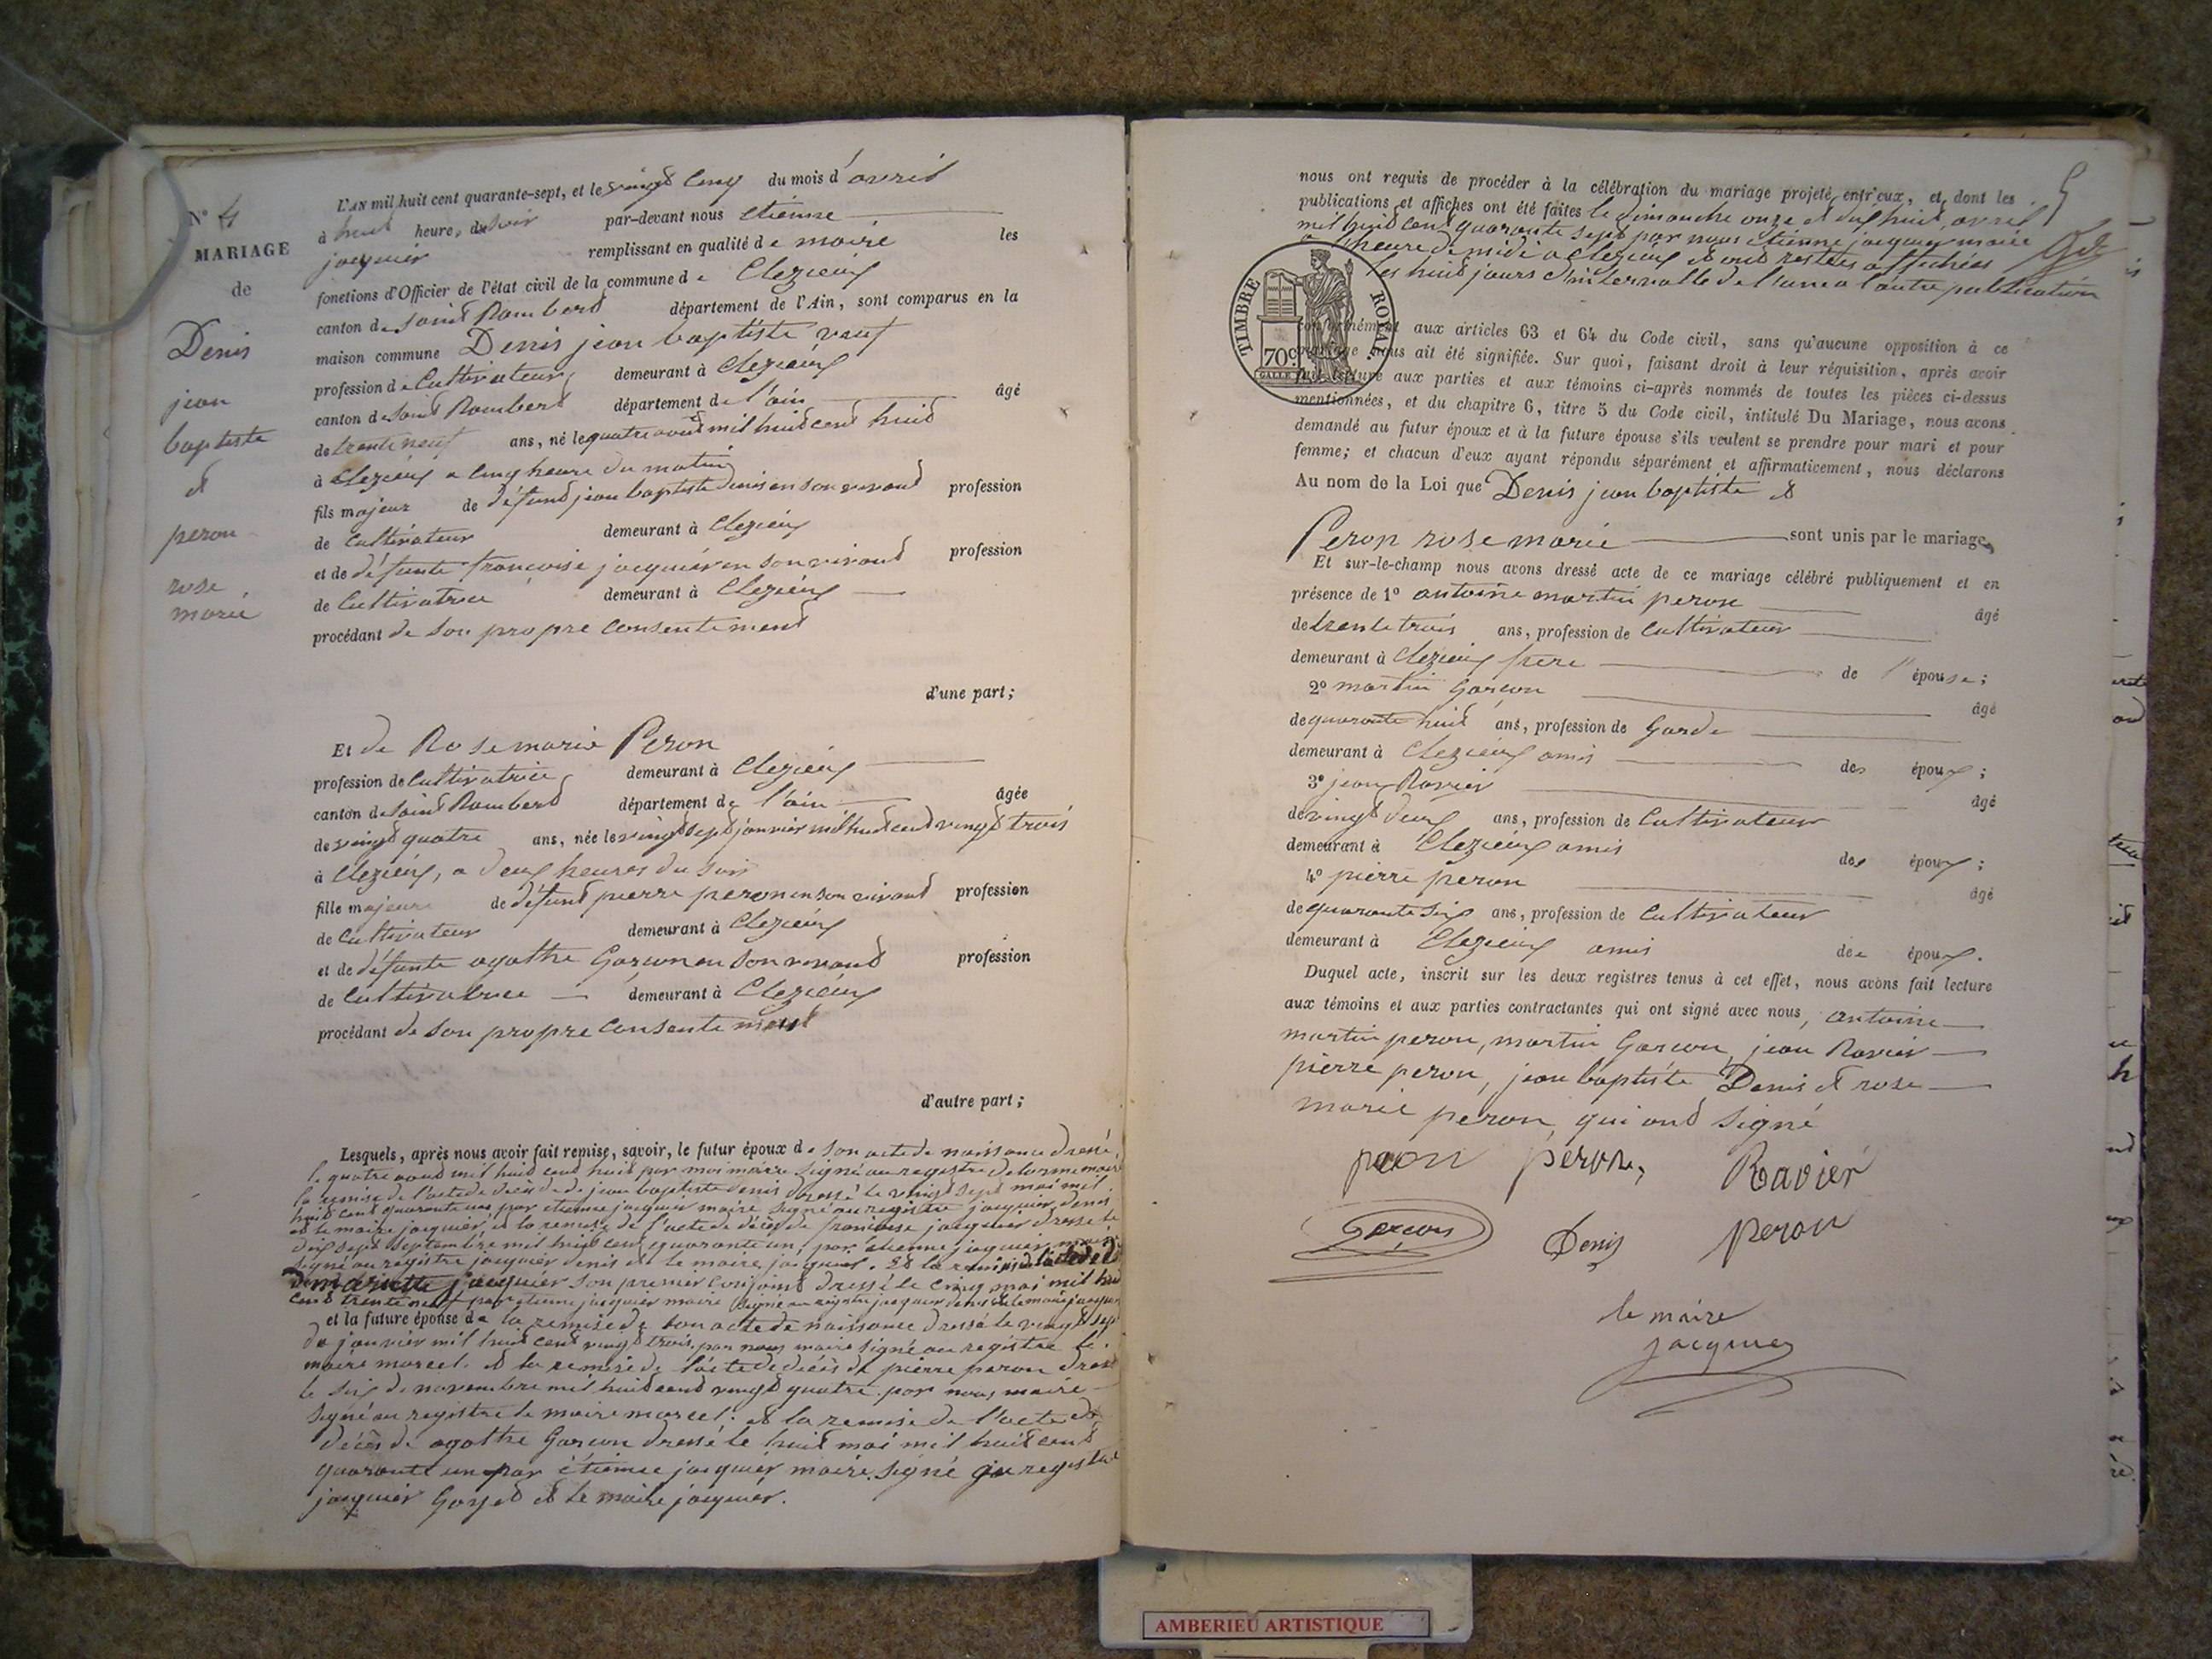 N° 4
MARIAGE
de
Denis
jean
baptiste
et
peron
rose
marie
L'AN mil huit cent quarante-sept, et le vingt cinq du mois d'avril
à huit heure, du soir par-devant nous etienne
jacquier remplissant en qualité de maire les
fonctions d'Officier de l'état civil de la commune de Clezieux
canton de saint Rambert département de l'Ain, sont comparus en la
maison commune Denis jean baptiste veuf
profession de Cultivateur demeurant à Clezieux
canton de saint Rambert département de l'ain âgé
de trente neuf ans, né le quatre aout mil huit cent huit
à Clezieux a cinq heure du matin
fils majeur de défunt jean baptiste denis en son vivant profession
de Cultivateur demeurant à Clezieux
et de défunte francoise jacquier en son vivant profession
de Cultivatrice demeurant à Clezieux
procédant de son propre consentement
d'une part;
Et de Rose marie Peron
profession de Cultivatrice demeurant à Clezieux
canton de saint Rambert département de l'ain âgée
de vingt quatre ans, née le vingt sept janvier mil huit cent vingt trois
à Clezieux, a deux heures du soir
fille majeure de défunt pierre peron en son vivant profession
de Cultivateur demeurant à Clezieux
et de défunte agathe Garcon en son vivant profession
de Cultivatrice demeurant à Clezieux
procédant de son propre consentement
d'autre part;
Lesquels, après nous avoir fait remise, savoir, le futur époux de son acte de naissance dressé
le quatre aout mil huit cent huit par moi maire signé au registre delorme maire
la remise de l'acte de décès de jean baptiste denis dressé le vingt sept mai mil
huit cent quarante un par etienne jacquier maire signé au registre jacquier denis
et le maire jacquier et la remise de l'acte de décès de francoise jacquier dressé le
dix sept septembre mil huit cent quarante un, par étienne jacquier maire
signé au registre jacquier denis et le maire jacquier. Et la remise de l'acte de
mariette jacquier son premier conjoint dressé le cinq mai mil huit
cent trente neuf par etienne jacquier maire signé au registre jacquier denis et le maire jacquier
et la future épouse de la remise de son acte de naissance dressé le vingt sept
de janvier mil huit cent vingt trois par nous maire signé au registre le
maire marcel. et la remise de l'acte de décès de pierre peron dressé
le six de novembre mil huit cent vingt quatre par nous maire
signé au registre le maire marcel. et la remise de l'acte de
décès de agathe Garcon dressé le huit mai mil huit cent
quarante un par étienne jacquier maire signé au registre
jacquier et le maire jacquier.
5
nous ont requis de procéder à la célébration du mariage projeté entr'eux, et dont les
publications et affiches ont été faites le dimanche onze et dix huit avril
mil huit cent quarante sept par nous etienne jacquier maire
a l'heure de midi a Clezieux et ont restées affichées
les huit jours d'intervalle de l'une a l'autre publication
TIMBRE ROYAL
70c
conformément aux articles 63 et 64 du Code civil, sans qu'aucune opposition à ce
mariage nous ait été signifiée. Sur quoi, faisant droit à leur réquisition, après avoir
fait lecture aux parties et aux témoins ci-après nommés de toutes les pièces ci-dessus
mentionnées, et du chapitre 6, titre 5 du Code civil, intitulé Du Mariage, nous avons
demandé au futur époux et à la future épouse s'ils veulent se prendre pour mari et pour
femme; et chacun d'eux ayant répondu séparément et affirmativement, nous déclarons
Au nom de la Loi que Denis jean baptiste et
Peron rose marie sont unis par le mariage,
Et sur-le-champ nous avons dressé acte de ce mariage célébré publiquement et en
présence de 1° antoine martin peron âgé
de trente trois ans, profession de Cultivateur
demeurant à Clezieux frere de l' épouse;
2° martin Garcon âgé
de quarante huit ans, profession de Garde
demeurant à Clezieux amis des époux;
3° jean Ravier âgé
de vingt deux ans, profession de Cultivateur
demeurant à Clezieux amis des époux;
4° pierre peron âgé
de quarante six ans, profession de Cultivateur
demeurant à Clezieux amis des époux.
Duquel acte, inscrit sur les deux registres tenus à cet effet, nous avons fait lecture
aux témoins et aux parties contractantes qui ont signé avec nous, antoine
martin peron, martin Garcon, jean Ravier
pierre peron, jean baptiste Denis et rose
marie peron, qui ont signé
peron peron, Ravier
Garcon Denis peron
le maire
jacquier
AMBERIEU ARTISTIQUE